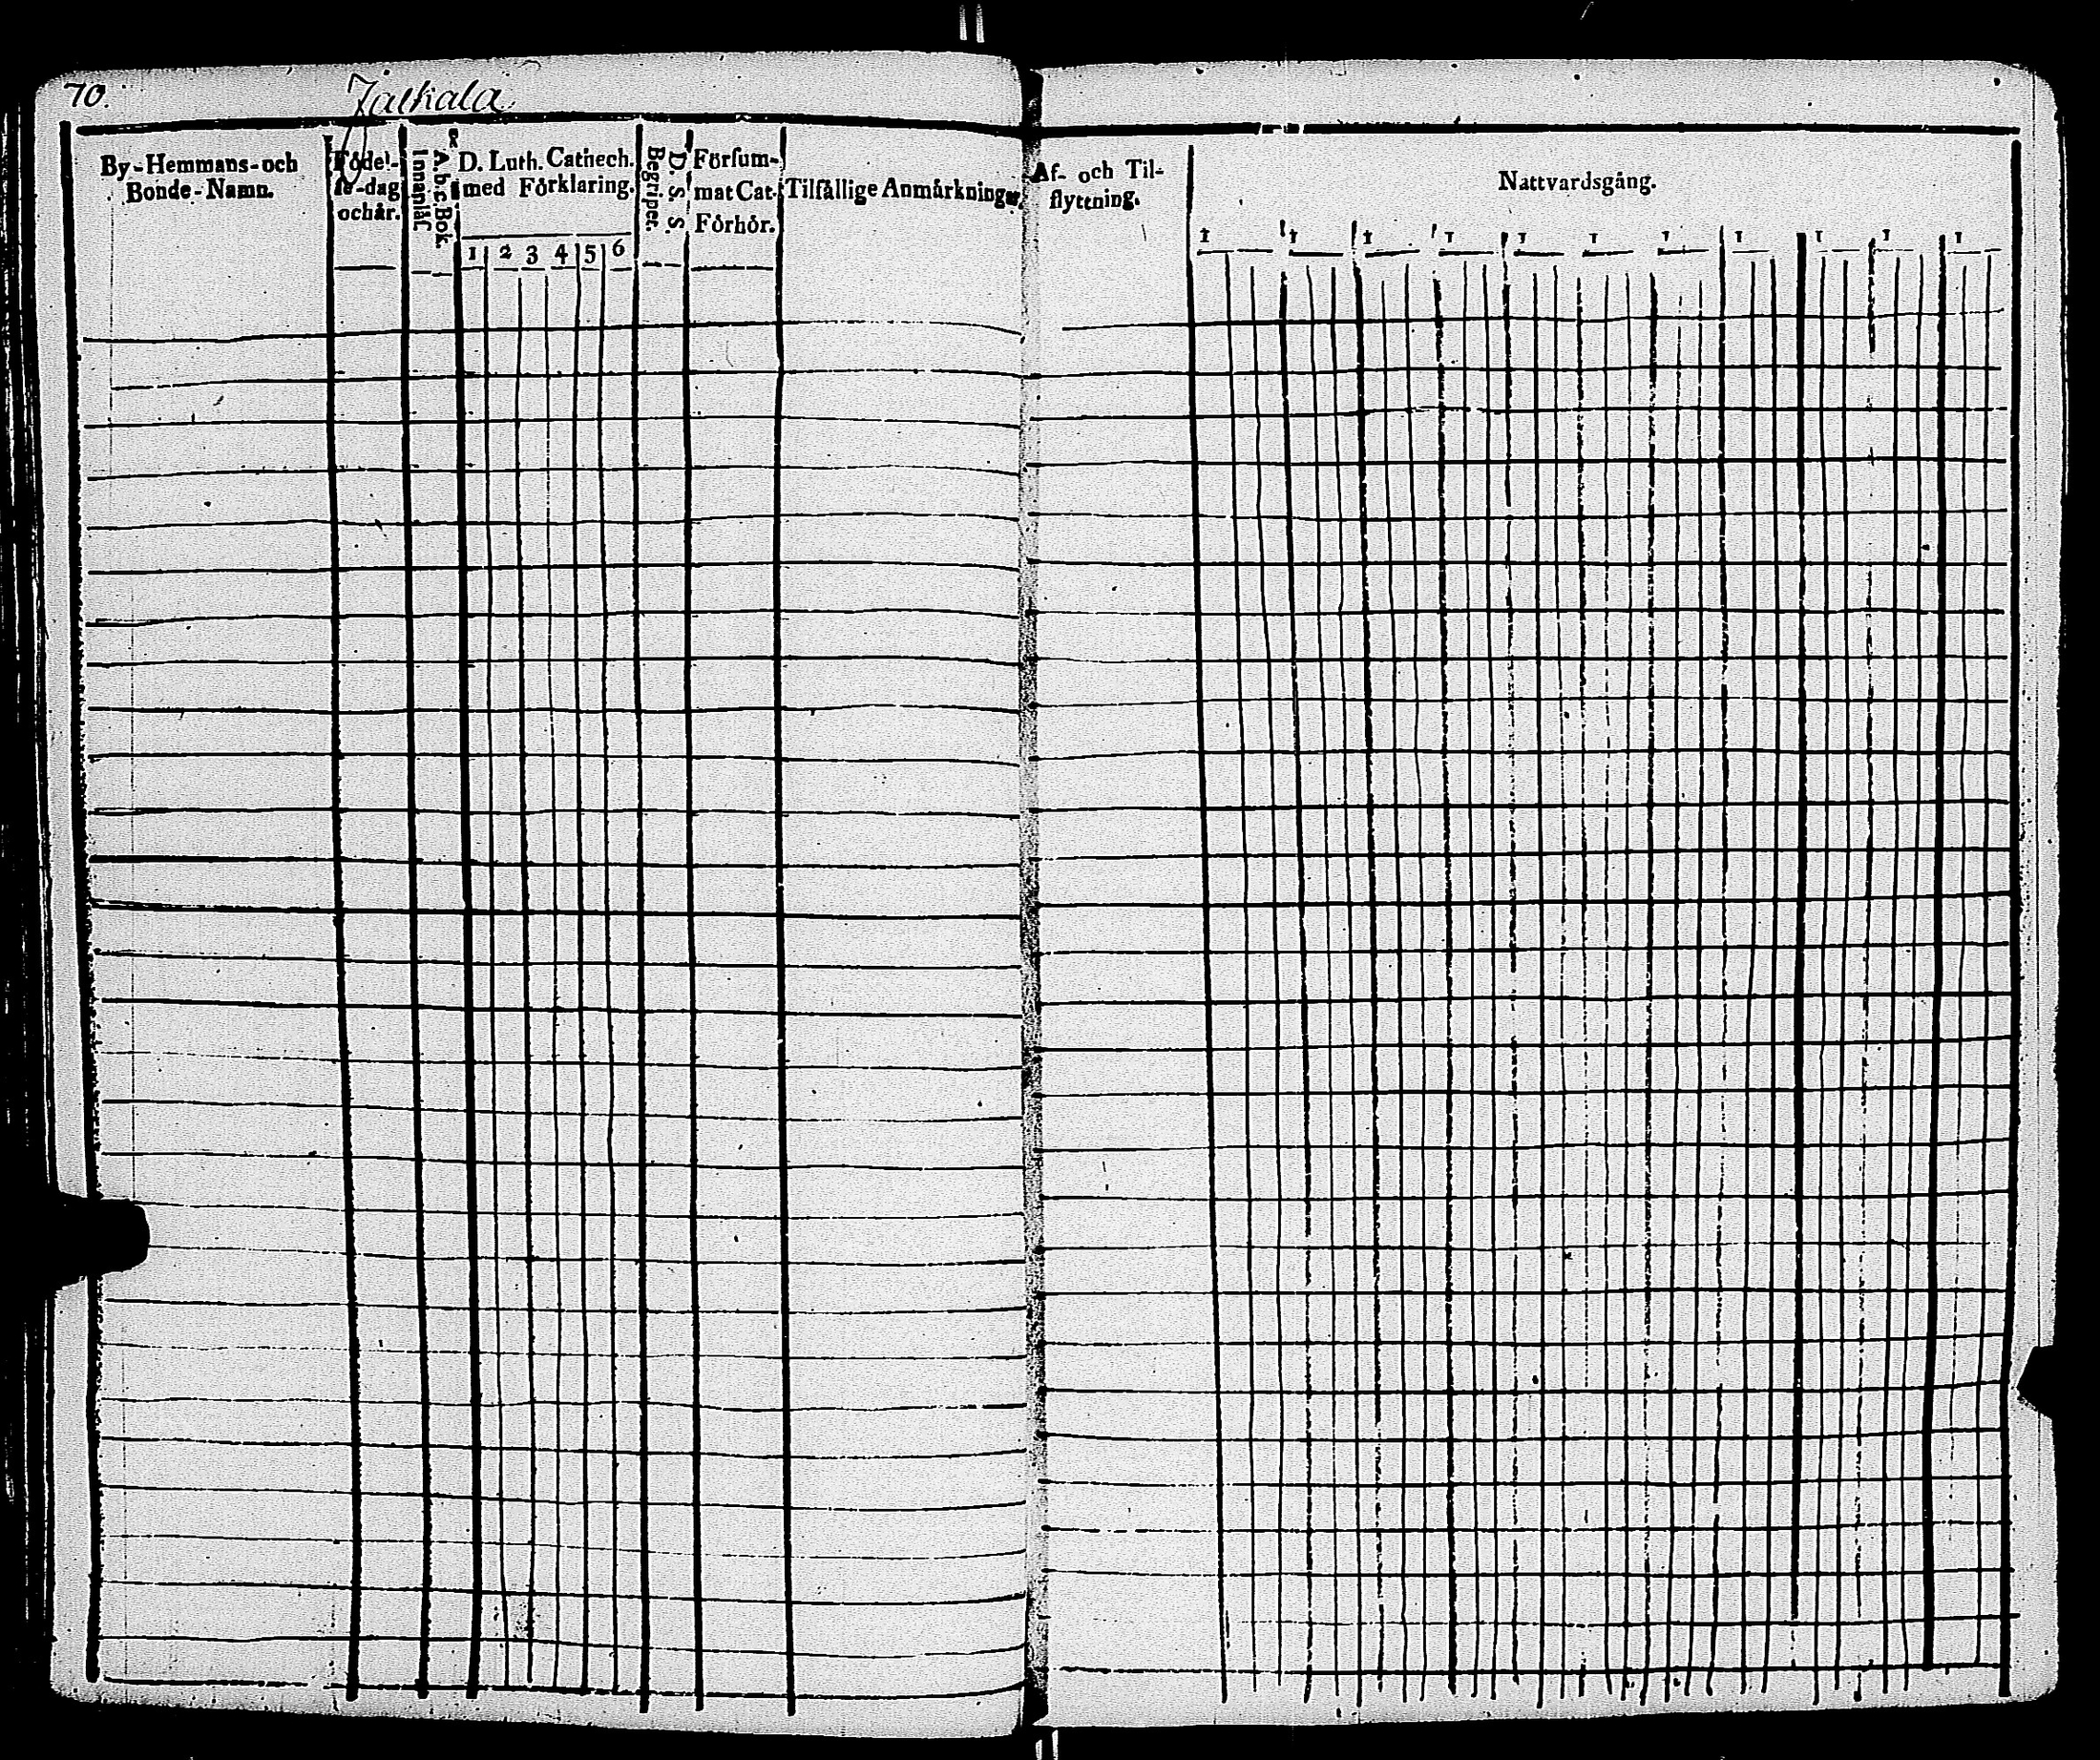 70. Jalkala
By-Hemmans-och
Bonde-Namn.
Födel-
se-dag
och år.
A b c Bok.
Innanläs
D. Luth. Cathech.
med Förklaring.
1 2 3 4 5 6
D. S. S.
Begripet.
Försum-
mat Cat.
Förhör.
Tilfällige Anmärkningar
Af- och Til-
flyttning.
Nattvardsgång.
1 1 1 1 1 1 1 1 1 1 1